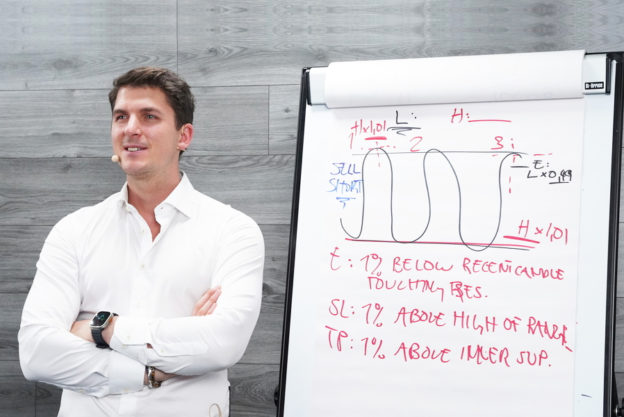 L:
H:
H x 1,01
1
2
3
SELL
SHORT
?
E:
L x 0,99
H x 1,01
E: 1% BELOW RECENT CANDLE
TOUCHING RES.
SL: 1% ABOVE HIGH OF RANGE
TP: 1% ABOVE INNER SUP.